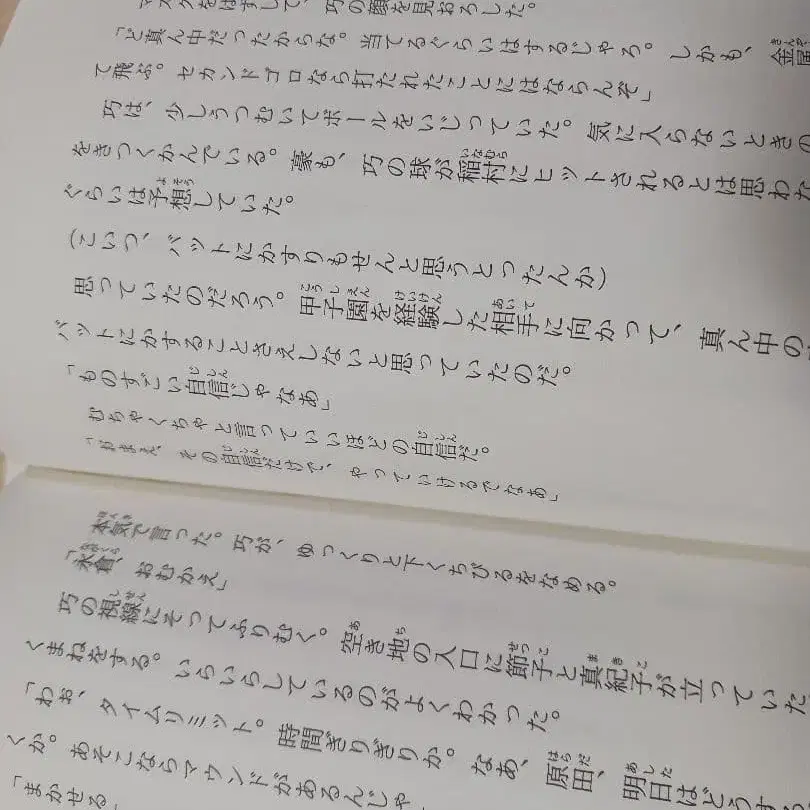 マスクをはずして、巧の顔を見おろした。
「ど真ん中だったからな。当てるぐらいはするじゃろ。しかも、金属
て飛ぶ。セカンドゴロなら打たれたことにはならんぞ」
巧は、少しうつむいてボールをいじっていた。気に入らないときの
をきつくかんでいる。豪も、巧の球が稲村にヒットされるとは思わな
ぐらいは予想していた。
(こいつ、バットにかすりもせんと思うとったんか)
思っていたのだろう。甲子園を経験した相手に向かって、真ん中の
バットにかすることさえしないと思っていたのだ。
「ものすごい自信じゃなあ」
むちゃくちゃと言っていいほどの自信だ。
「おまえ、その自信だけで、やっていけるでなあ」
本気で言った。巧が、ゆっくりと下くちびるをなめる。
「永倉、おむかえ」
巧の視線にそってふりむく。空き地の入口に節子と真紀子が立っていた
くまねをする。いらいらしているのがよくわかった。
「わお、タイムリミット。時間ぎりぎりか。なあ、原田、明日はどうす
くか。あそこならマウンドがあるんじゃ
「まかせる」